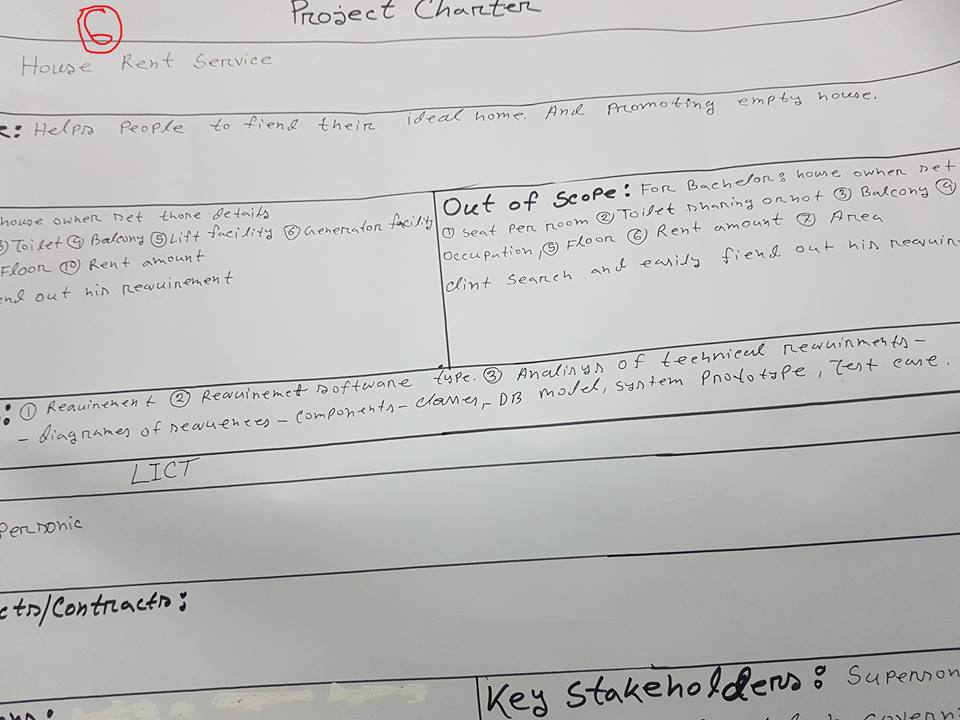 Project Charter
6
House Rent Service
: Helps People to fiend their ideal home. And Promoting empty house.
house owner set those details
Toilet ④ Balcony ⑤ Lift facility ⑥ Generator facility
Floor ⑩ Rent amount
end out his reauirement
Out of Scope: For Bachelor: house owner set
① Seat Per room ② Toilet sharing or not ③ Balcony ④
Occupation, ⑤ Floor ⑥ Rent amount ⑦ Area
clint Search and easily fiend out his reauir
: ① Reauirement ② Reauiremet software type. ③ Analisys of technical reauirments -
- diagrames of seauences - components - classes, - DB model, system Prototype, Test case.
LICT
Personic
cts/Contracts:
Key Stakeholders: Superson